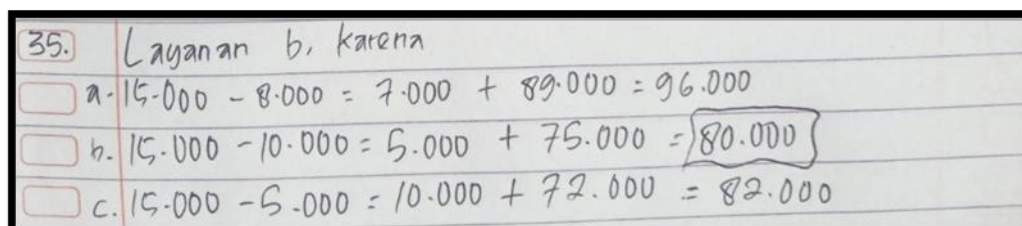 35. Layanan b, karena
a. 15.000 - 8.000 = 7.000 + 89.000 = 96.000
b. 15.000 - 10.000 = 5.000 + 75.000 = 80.000
c. 15.000 - 5.000 = 10.000 + 72.000 = 82.000